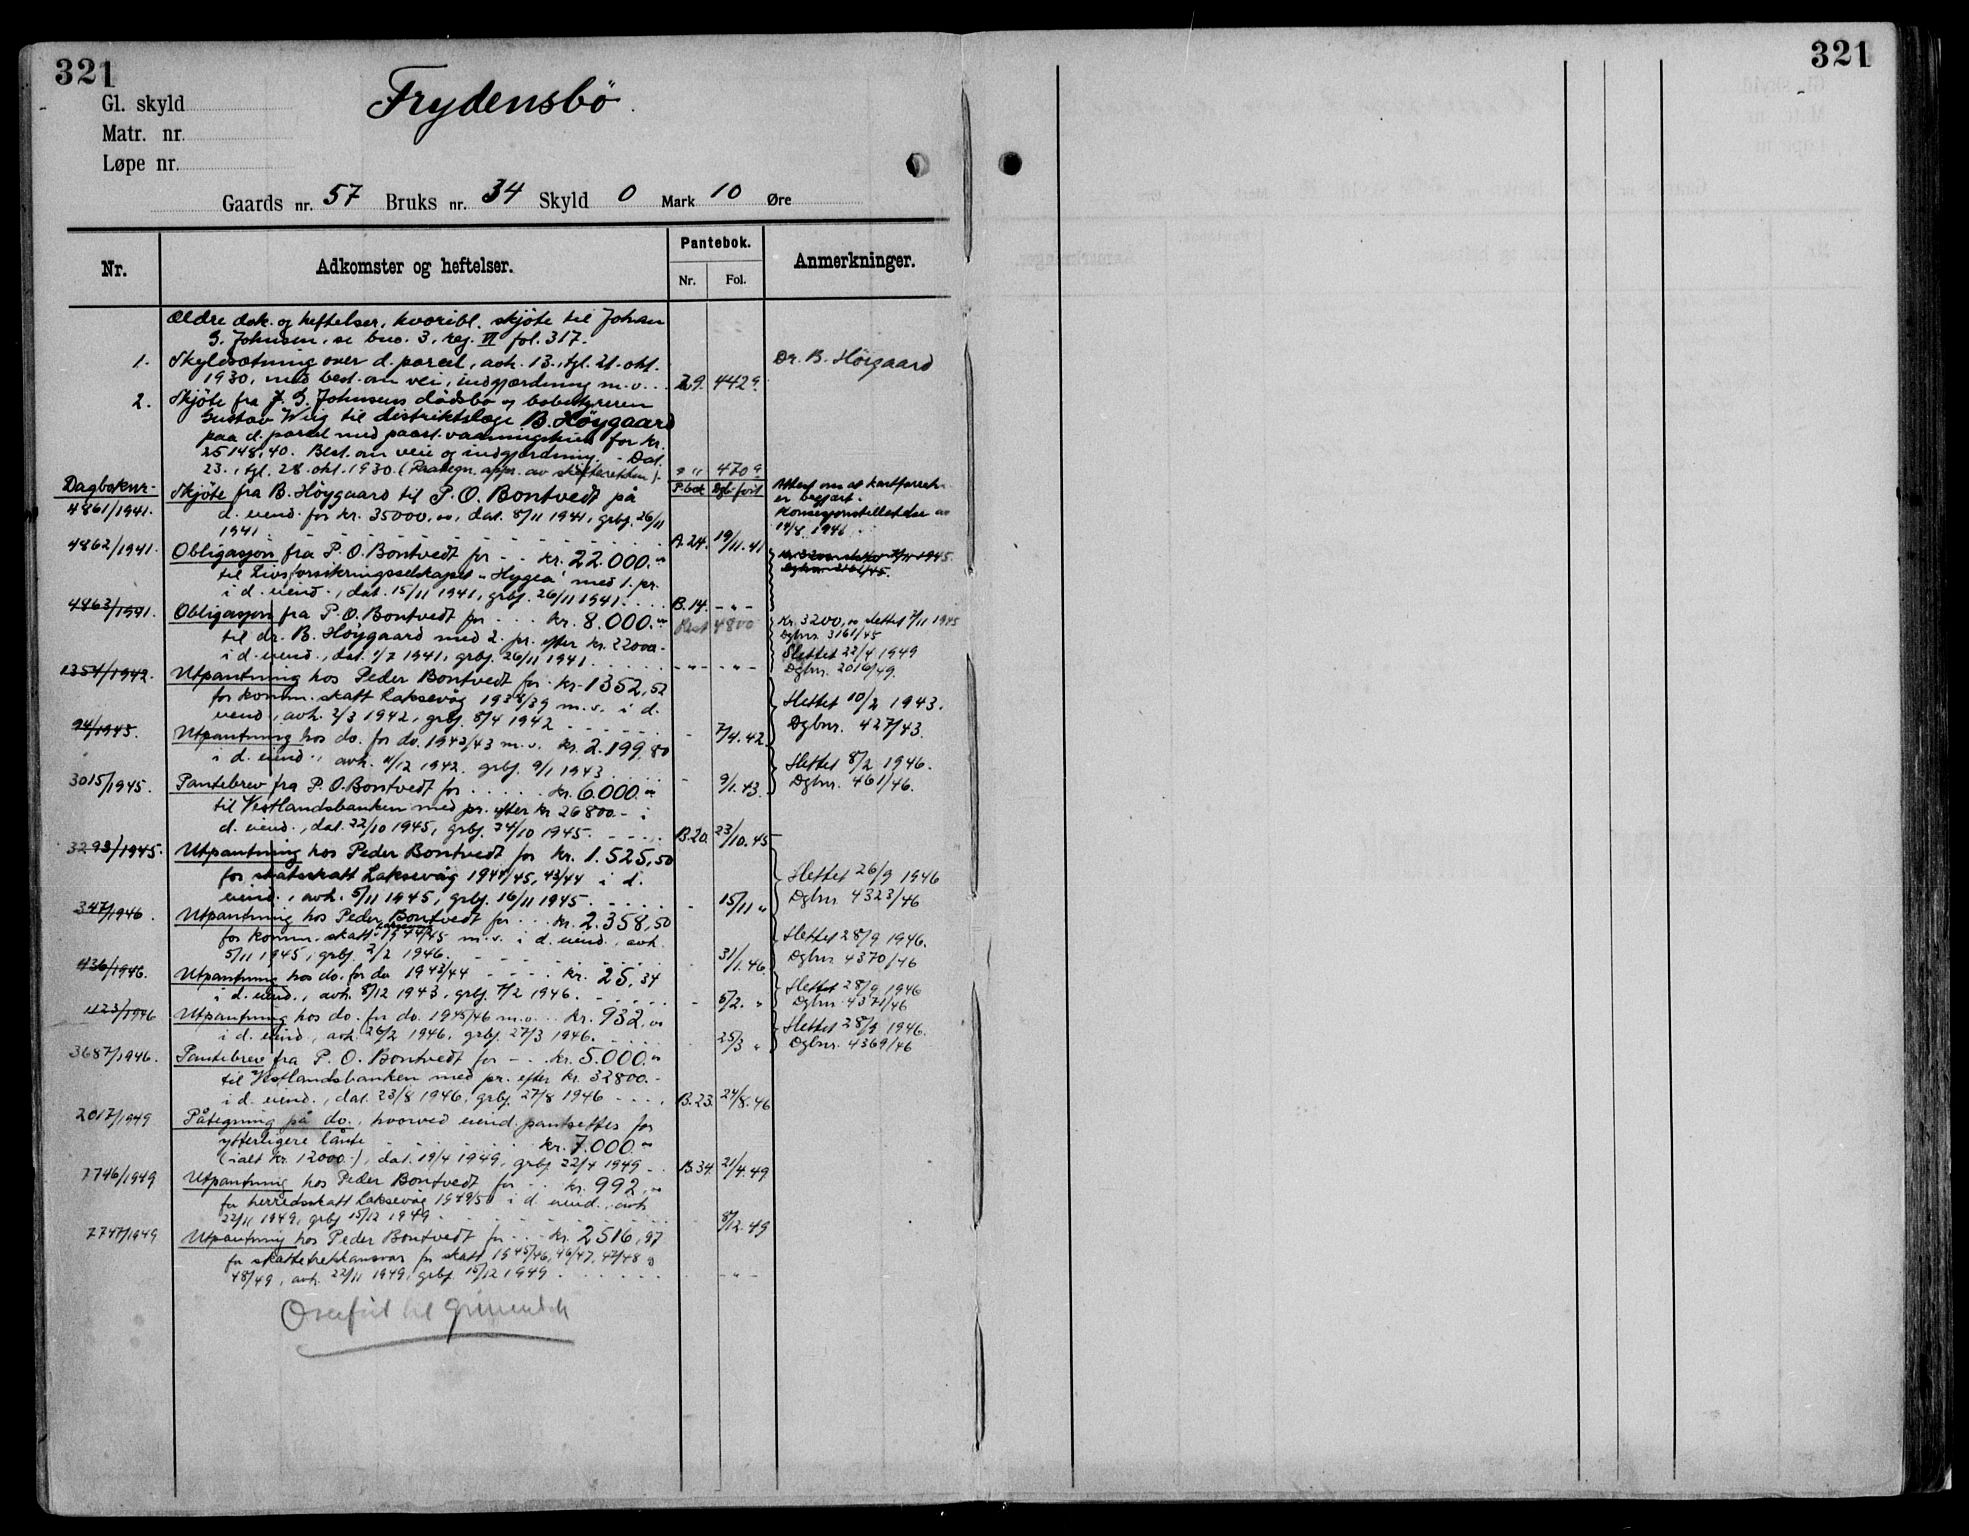 321
321
Gl. skyld
Frydensbö.
Matr. nr.
Løpe nr.
Gaards nr. 57 Bruks nr. 34 Skyld 0 Mark 10 Øre
Nr.
Adkomster og heftelser.
Pantebok.
Nr. Fol.
Anmerkninger.
Ældre dok. og heftelser, hvoribl. skjöte til Johan
G. Johnsen, se bno. 3, reg. VI fol. 317.
1. Skyldsætning over d. parcel, avh. 13., tgl. 21. okt. Dr. B. Höigaard
1930, med best. om vei, indgjærdning m.v... 29. 442
2. Skjöte fra J. G. Johnsens dödsbo og bobestyreren
Gustav Wiig til distriktslæge B. Höygaard
paa d. parcel med paast. vaaningshus for kr.
25148,40. Best. om veie og indgjærdning. - Dat.
23., tgl. 28. okt. 1930. (Paategn. appr. av skifteretten). " " 470
Dagboknr. Skjöte fra B. Höygaard til P. O. Bontvedt på P.bok Dgb. fört Attest om at
4861/1941. d. eiend. for kr. 35000,00, dat. 8/11 1941, grbf. 26/11 er begjært.
1941 A 24. 19/11.41 Konsesjonstillatelse av
14/8 1941
4862/1941. Obligasjon fra P. O. Bontvedt for - - kr. 22.000.00
til Livsforsikringsselskapet "Hygea" med 1. pr.
i d. eiend., dat. 15/11 1941, grbf. 26/11 1941.... B.14. - " -
4863/1941. Obligasjon fra P. O. Bontvedt for ... kr. 8.000.00 Rest 4800 kr. 3200,00 slettet 7/11 1945
til dr. B. Höygaard med 2. pr. efter kr. 22000.- Dgbnr. 3161/45
i d. eiend., dat. 1/7 1941, grbf. 26/11 1941..... - " - - " - Slettet 22/4 1949
Dgbnr. 2016/49.
1354/1942. Utpantning hos Peder Bontvedt for kr. 1352,52
for komm. skatt Laksevåg 1938/39 m.v. i d. Slettet 10/2 1943.
eiend., avh. 2/3 1942, grbf. 8/4 1942 - 7/4.42. Dgbnr. 427/43.
94/1943. Utpantning hos do. for do. 1942/43 m.v. kr. 2.199,80
i d. eiend., avh. 11/12 1942. grbf. 9/1 1943 .... - 9/1.43. Slettet 8/2 1946.
Dgbnr. 461/46.
3015/1945. Pantebrev fra P. O. Bontvedt for ..... kr. 6.000.00
til Vestlandsbanken med pr. efter kr 26800.- i
d. eiend., dat. 22/10 1945, grbf. 24/10 1945. B.20. 23/10.45
3293/1945. Utpantning hos Peder Bontvedt for kr. 1.525,50
for statsskatt Laksevåg 1944/45, 43/44 i d. Slettet 26/9 1946
eiend., avh. 5/11 1945, grbf. 16/11 1945. - 15/11 " Dgbnr. 4323/46
347/1946. Utpantning hos Peder Bontvedt for ... kr. 2.358,50
for komm. skatt Laksevåg 1944/45 m.v. i d. eiend., avh. Slettet 28/9 1946.
5/11 1945, grbf. 2/2 1946. - 31/1.46. Dgbnr. 4370/46
436/1946. Utpantning hos do. for do 1943/44 - - - - kr. 25,34
i d. eiend., avh. 8/12 1943, grbf. 7/2 1946. - 5/2. " Slettet 28/9 1946
Dgbnr. 4371/46
1123/1946 Utpantning hos do. for do. 1945/46 m.v... kr. 932,00
i d. eiend., avh. 26/2 1946, grbf. 27/3 1946. 25/3 " Slettet 28/9 1946.
Dgbnr. 4369/46
3687/1946. Pantebrev fra P. O. Bontvedt for - .. kr. 5.000.00
til Vestlandsbanken med pr. efter kr. 32800.-
i d. eiend., dat. 23/8 1946, grbf. 27/8 1946 .... B.23. 24/8.46
2017/1949 Påtegning på do., hvorved eiend. pantsettes for
ytterligere lånte kr. 7.000.00
(ialt kr. 12000.-), dat. 19/4 1949, grbf 22/4 1949 B.34. 21/4.49
7746/1949 Utpantning hos Peder Bontvedt for ... kr. 992,00
for herredsskatt Laksevåg 1949/50 i d. eiend., avh
22/11 1949, grbf 15/12 1949. 8/12.49
7747/1949 Utpantning hos Peder Bontvedt for ... kr. 2516,97
for skattetrekkansvar for skatt 1945/46, 46/47, 47/48 og
48/49, avh. 22/11 1949, grbf. 15/12 1949 ...... - " -
Overført til